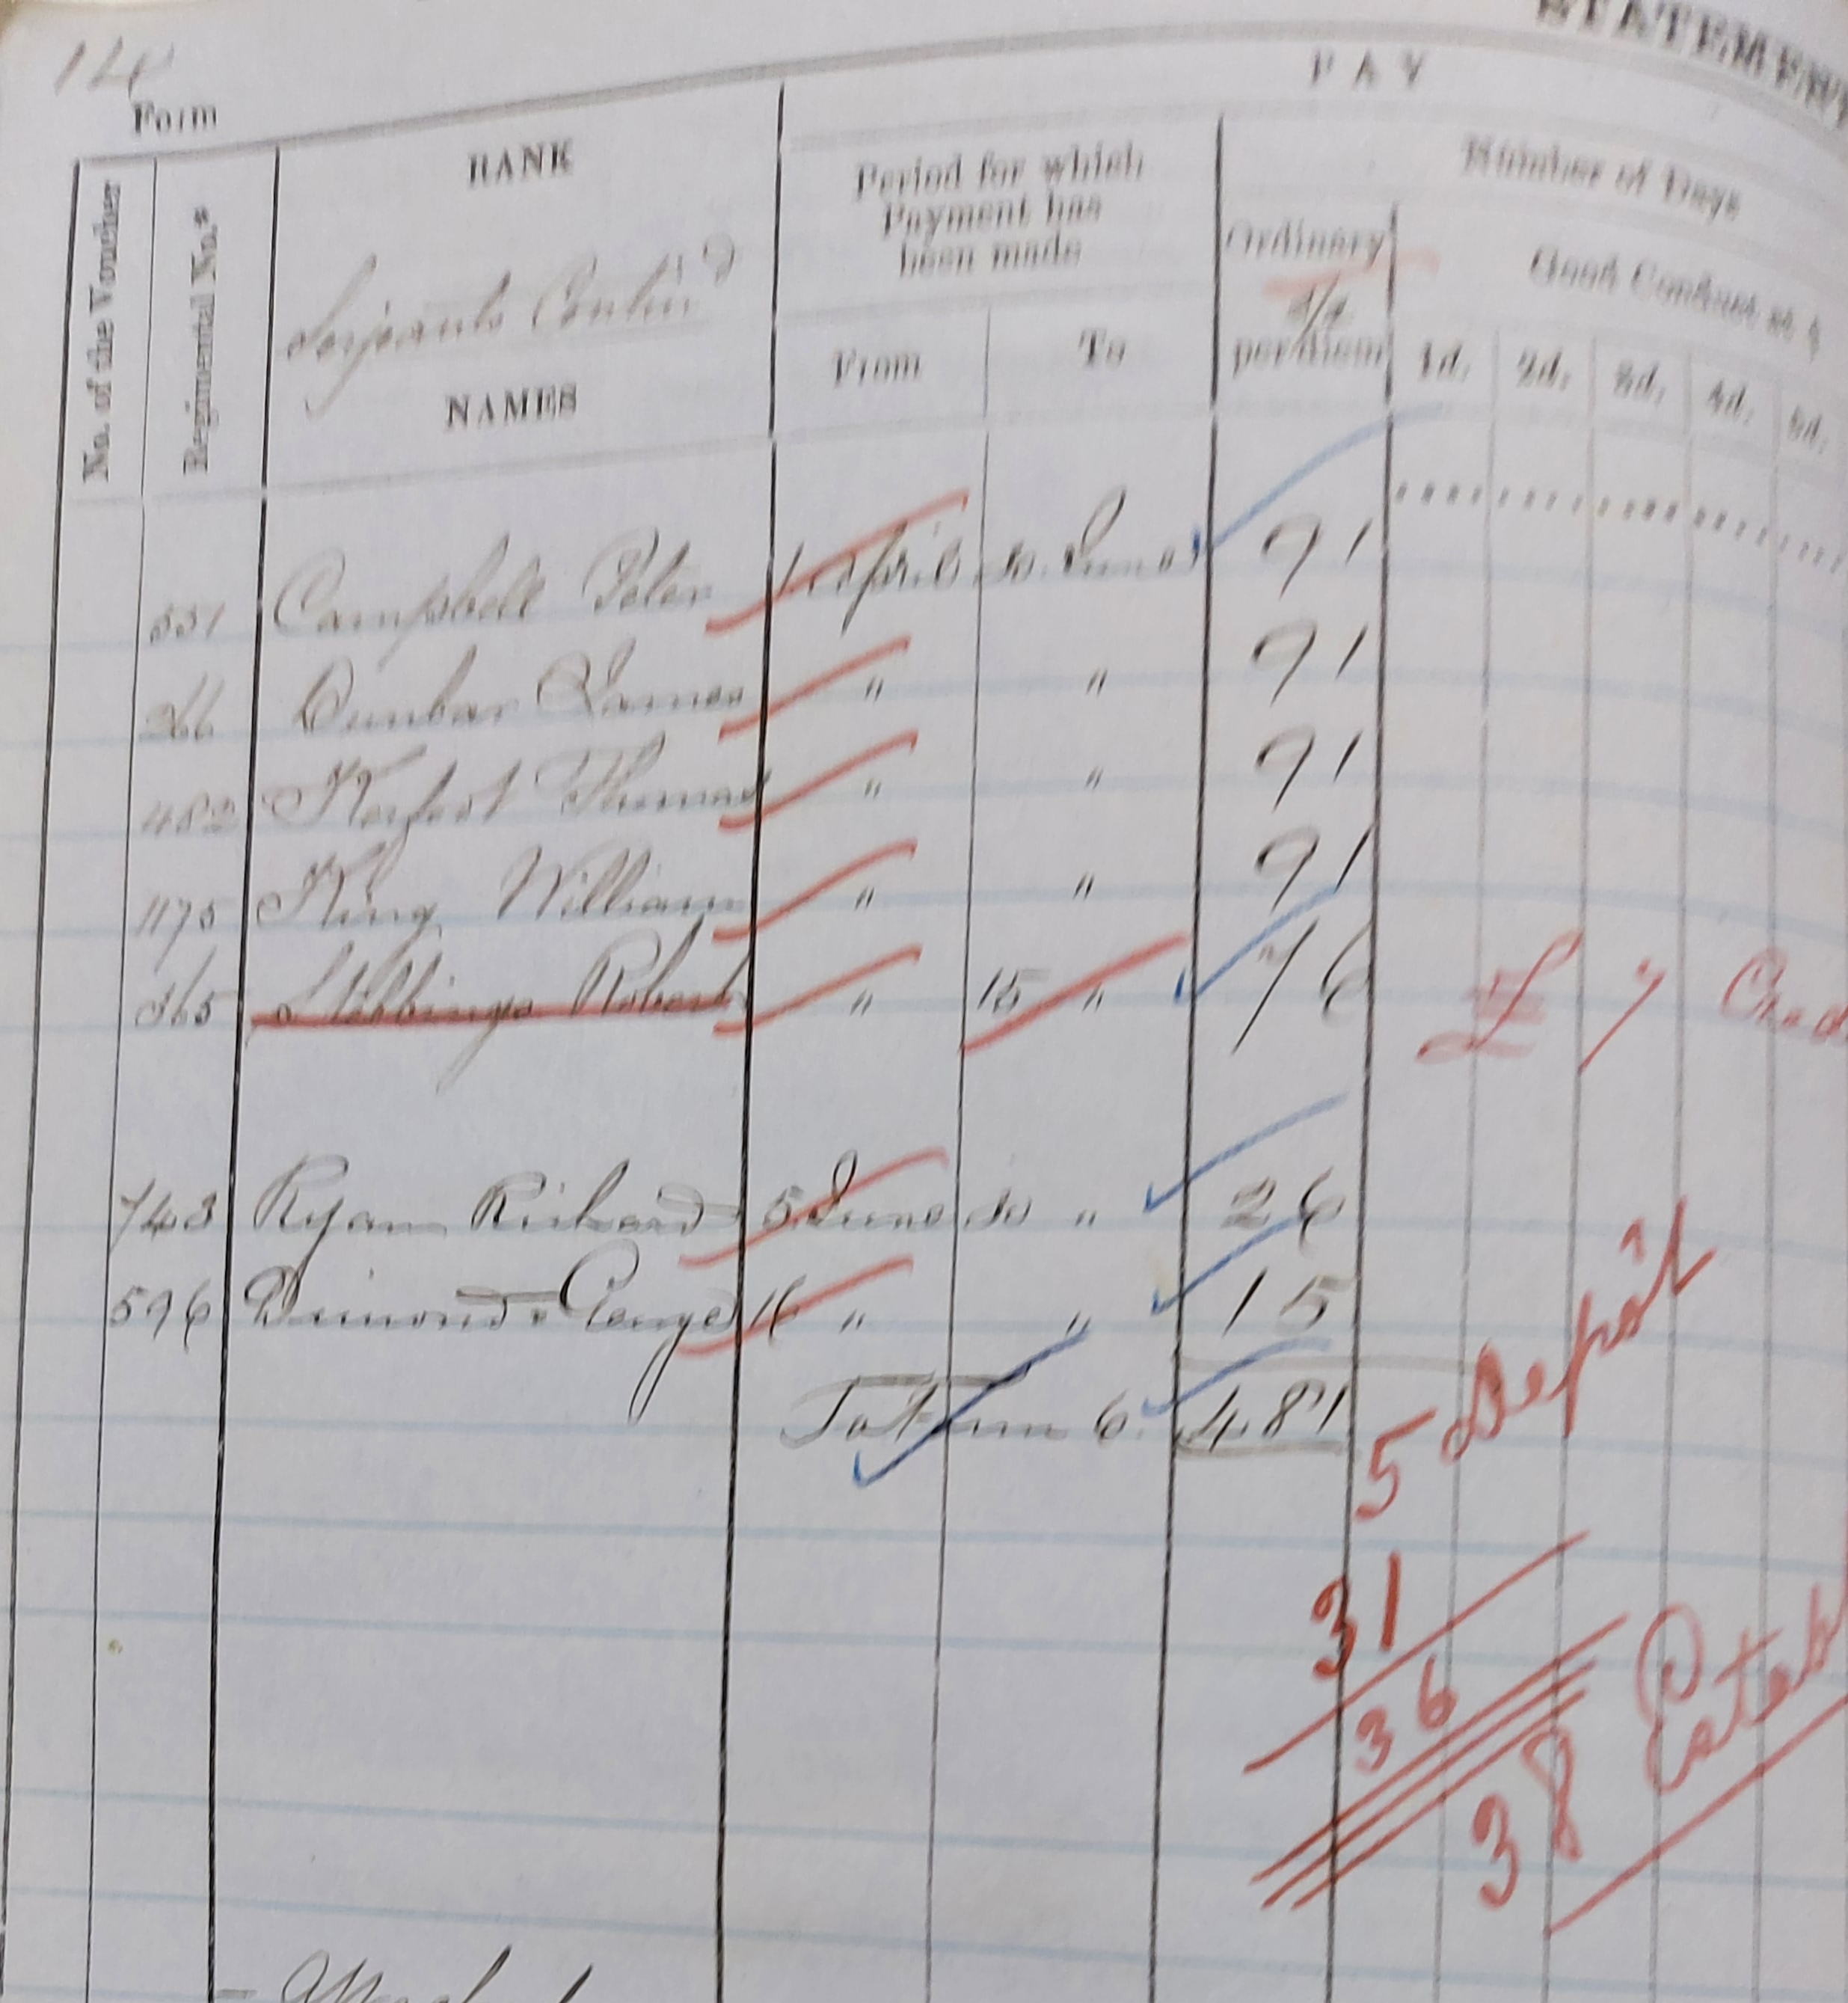 14
STATEMENT
Form
PAY
No. of the Voucher
Regimental No.*
RANK
Serjeants Contin'd
NAMES
Period for which Payment has been made
From To
Number of Days
Ordinary
per diem
Good Conduct at
1d. 2d. 3d. 4d. 5d.
551 Campbell Peter 1 April 30 June 91
266 Dunbar James " " 91
482 Kerfoot Thomas " " 91
1175 King William " " 91
365 Stebbings Robert " 15 " 76
743 Ryan Richard 5 June 30 " 26
596 Dimond George 16 " " 15
6 481
5 Depôt
31
36
38 Estab